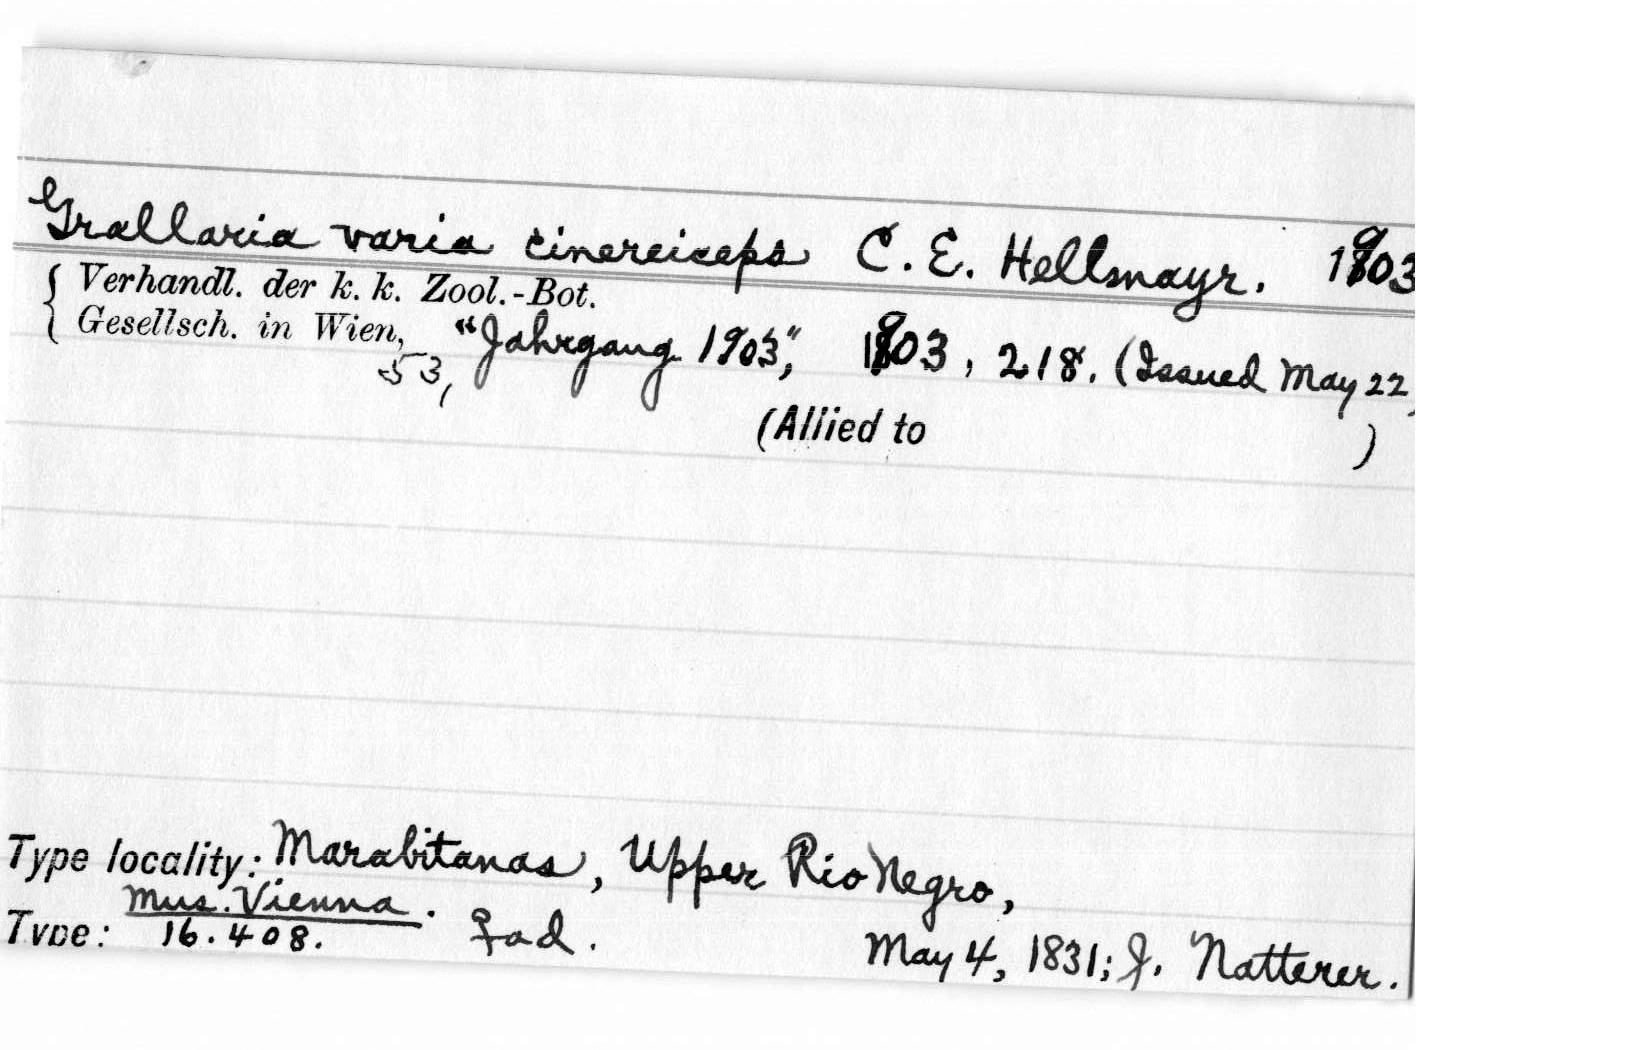 Grallaria varia cinereiceps C. E. Hellmayr. 1903
{ Verhandl. der k. k. Zool.-Bot.
Gesellsch. in Wien, 53, "Jahrgang 1903", 1903, 218. (Issued May 22,
(Allied to )
Type locality: Marabitanas, Upper Rio Negro,
Mus. Vienna.
Type: 16.408. ♀ ad. May 4, 1831; J. Natterer.